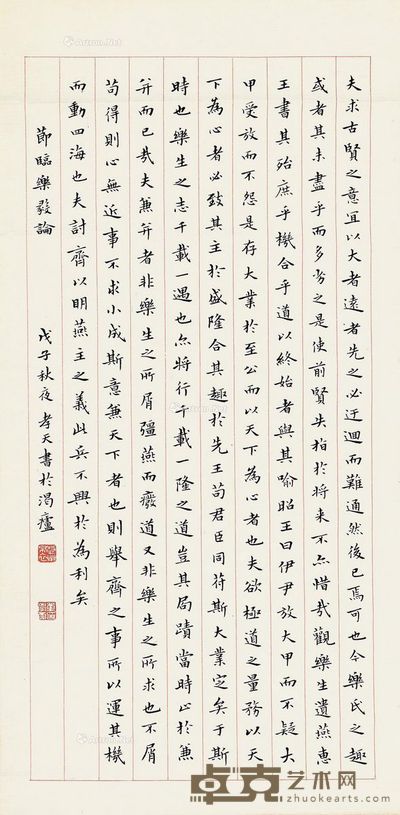 夫求古賢之意宜以大者遠者先之必迂迴而難通然後已焉可也今樂氏之趣
或者其未盡乎而多劣之是使前賢失指於將來不亦惜哉觀樂生遺燕惠
王書其殆庶乎機合乎道以終始者與其喻昭王曰伊尹放大甲而不疑大
甲受放而不怨是存大業於至公而以天下為心者也夫欲極道之量務以天
下為心者必致其主於盛隆合其趣於先王苟君臣同符斯大業定矣于斯
時也樂生之志千載一遇也亦將行千載一隆之道豈其局蹟當時止於兼
并而已哉夫兼并者非樂生之所屑彊燕而癈道又非樂生之所求也不屑
苟得則心無近事不求小成斯意兼天下者也則舉齊之事所以運其機
而動四海也夫討齊以明燕主之義此兵不興於為利矣
節臨樂毅論
戊子秋夜孝天書於渴廬
卓克艺术网
zhuokearts.com